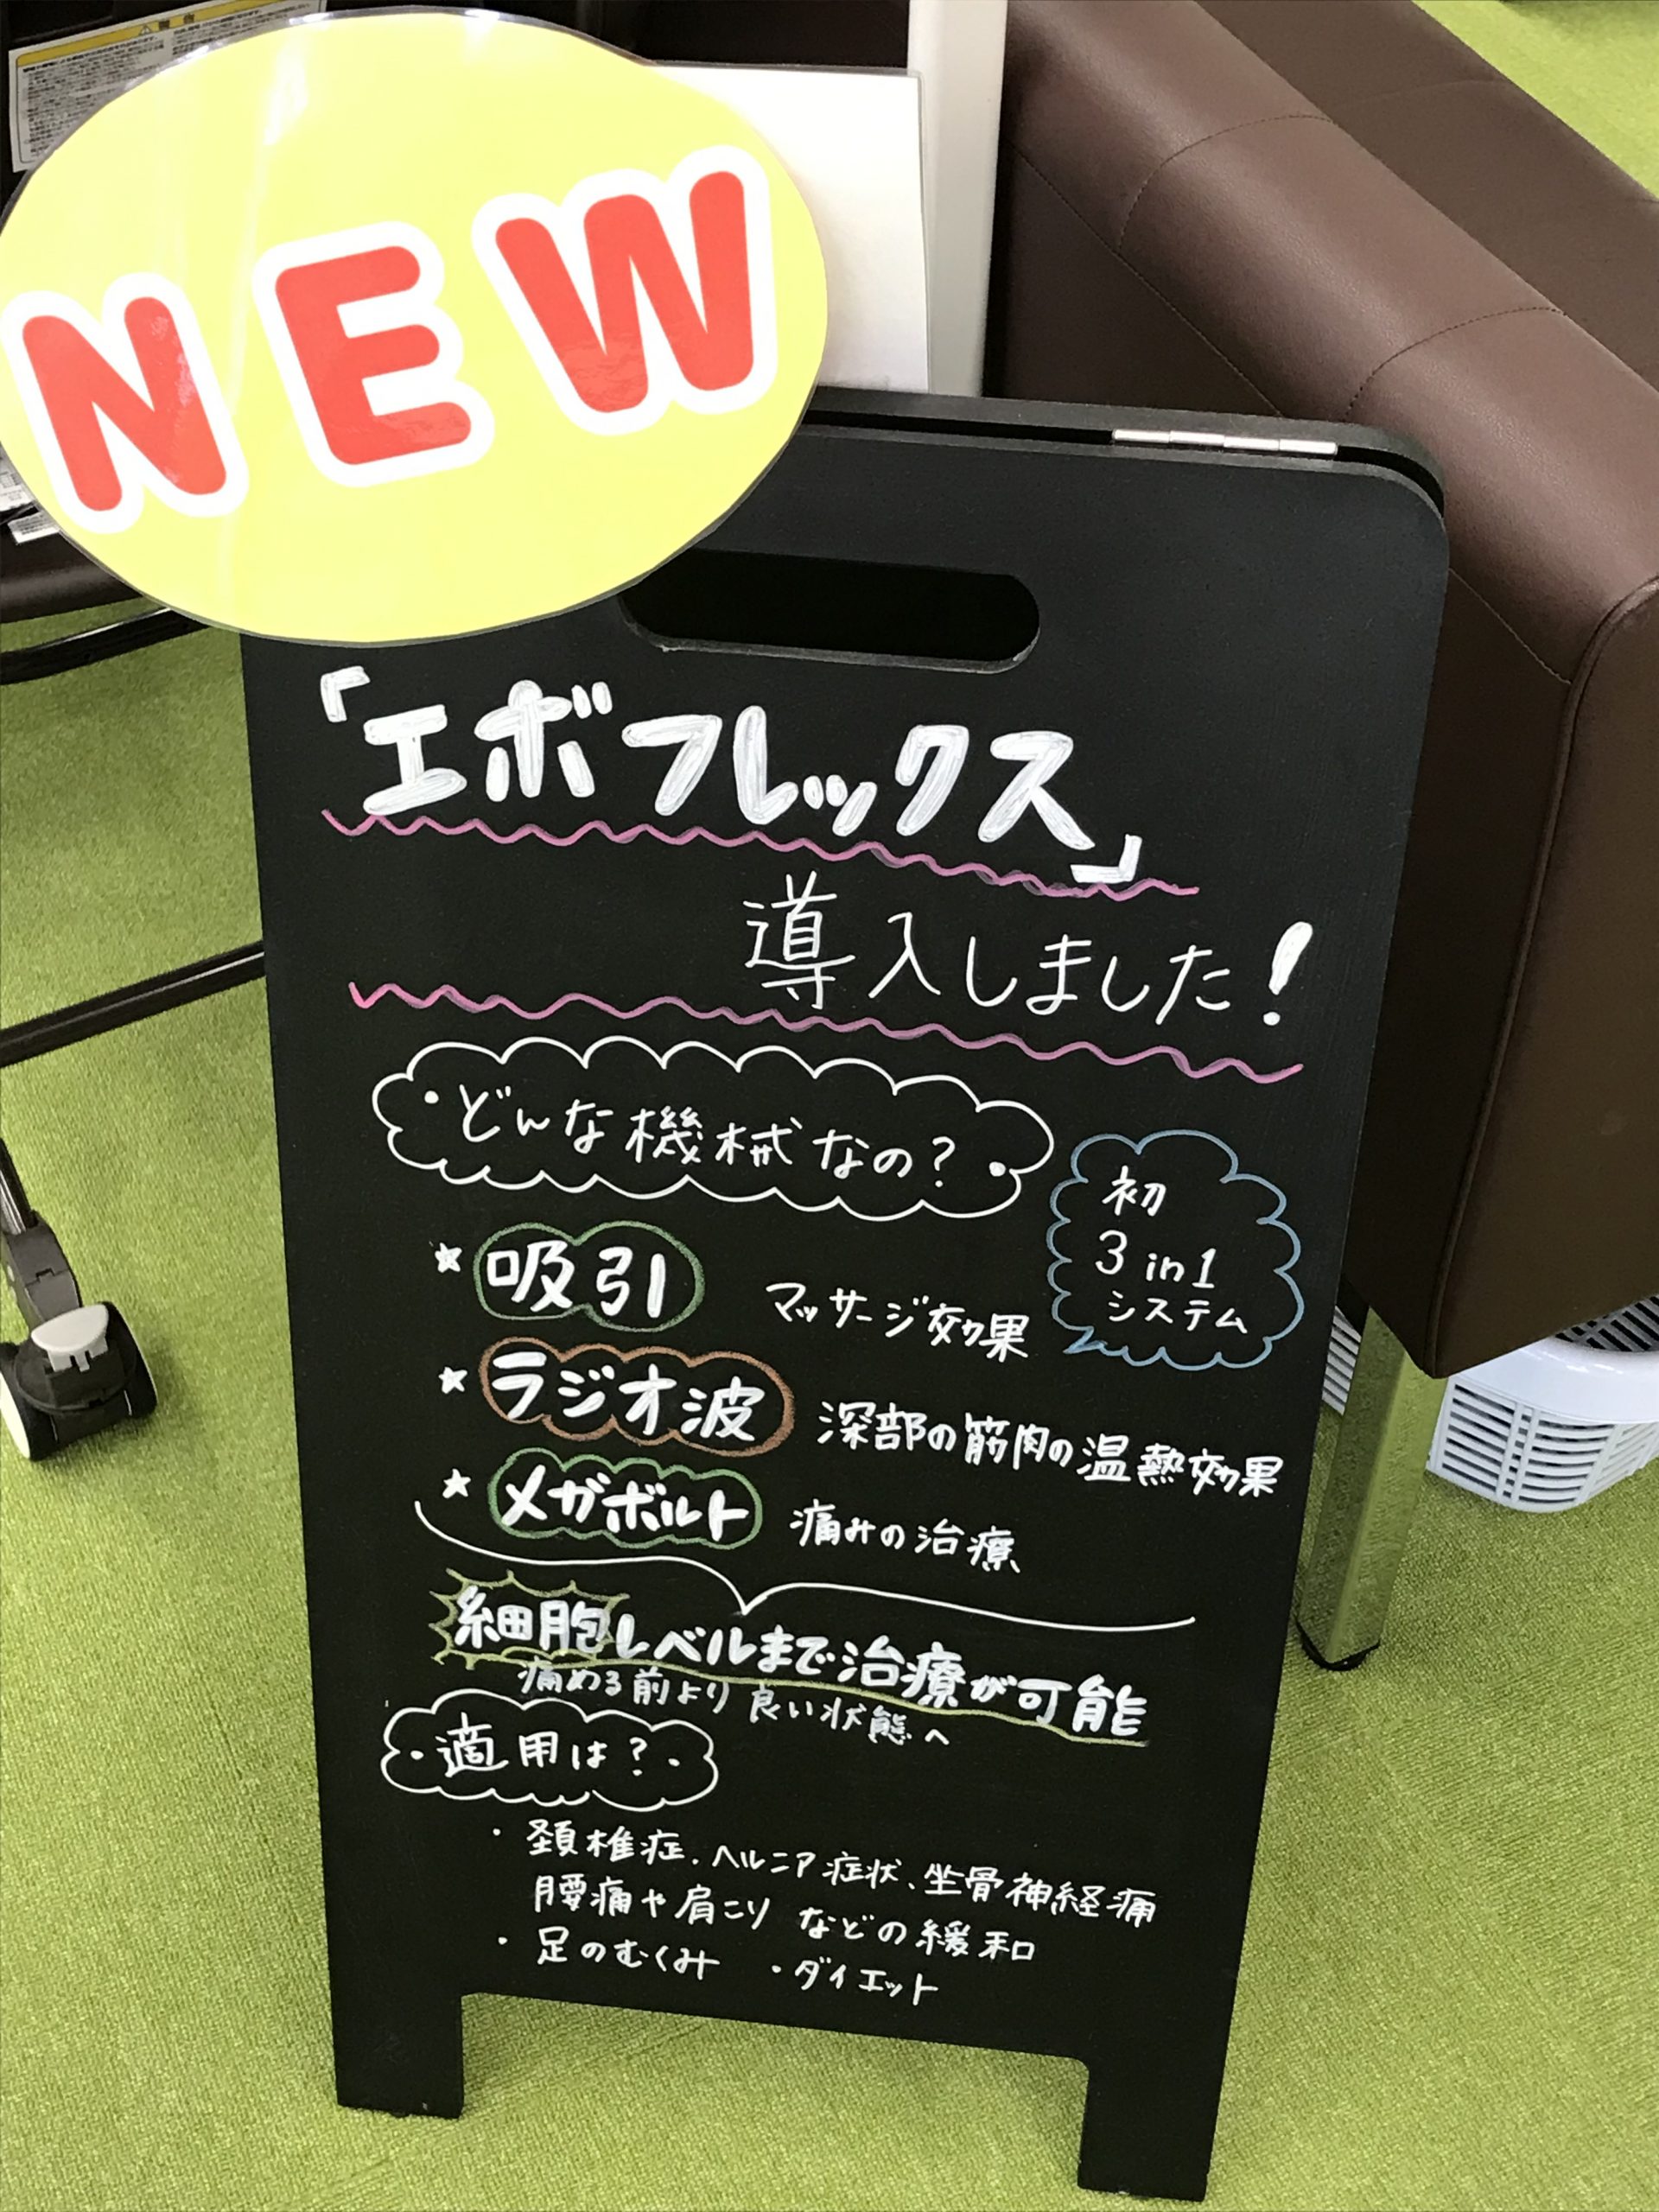 NEW
「エボフレックス」
導入しました!
・どんな機械なの?・
初
3in1
システム
★吸引 マッサージ効果
★ラジオ波 深部の筋肉の温熱効果
★メガボルト 痛みの治療
細胞レベルまで治療が可能
痛める前より良い状態へ
・適用は?・
・頚椎症、ヘルニア症状、坐骨神経痛
腰痛や肩こりなどの緩和
・足のむくみ ・ダイエット